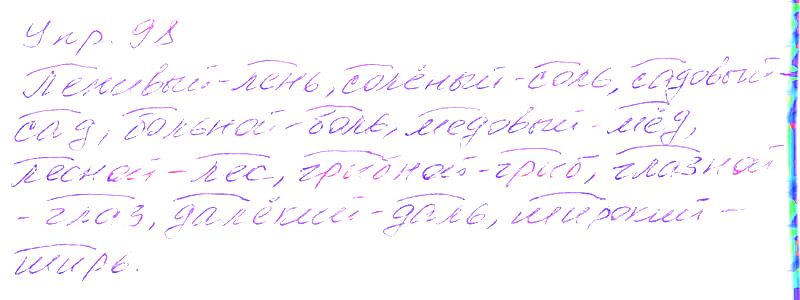 Упр. 98
Ленивый-лень, солёный-соль, садовый-
сад, больной-боль, медовый-мёд,
лесной-лес, грибной-гриб, глазной
-глаз, далёкий-даль, широкий-
ширь.